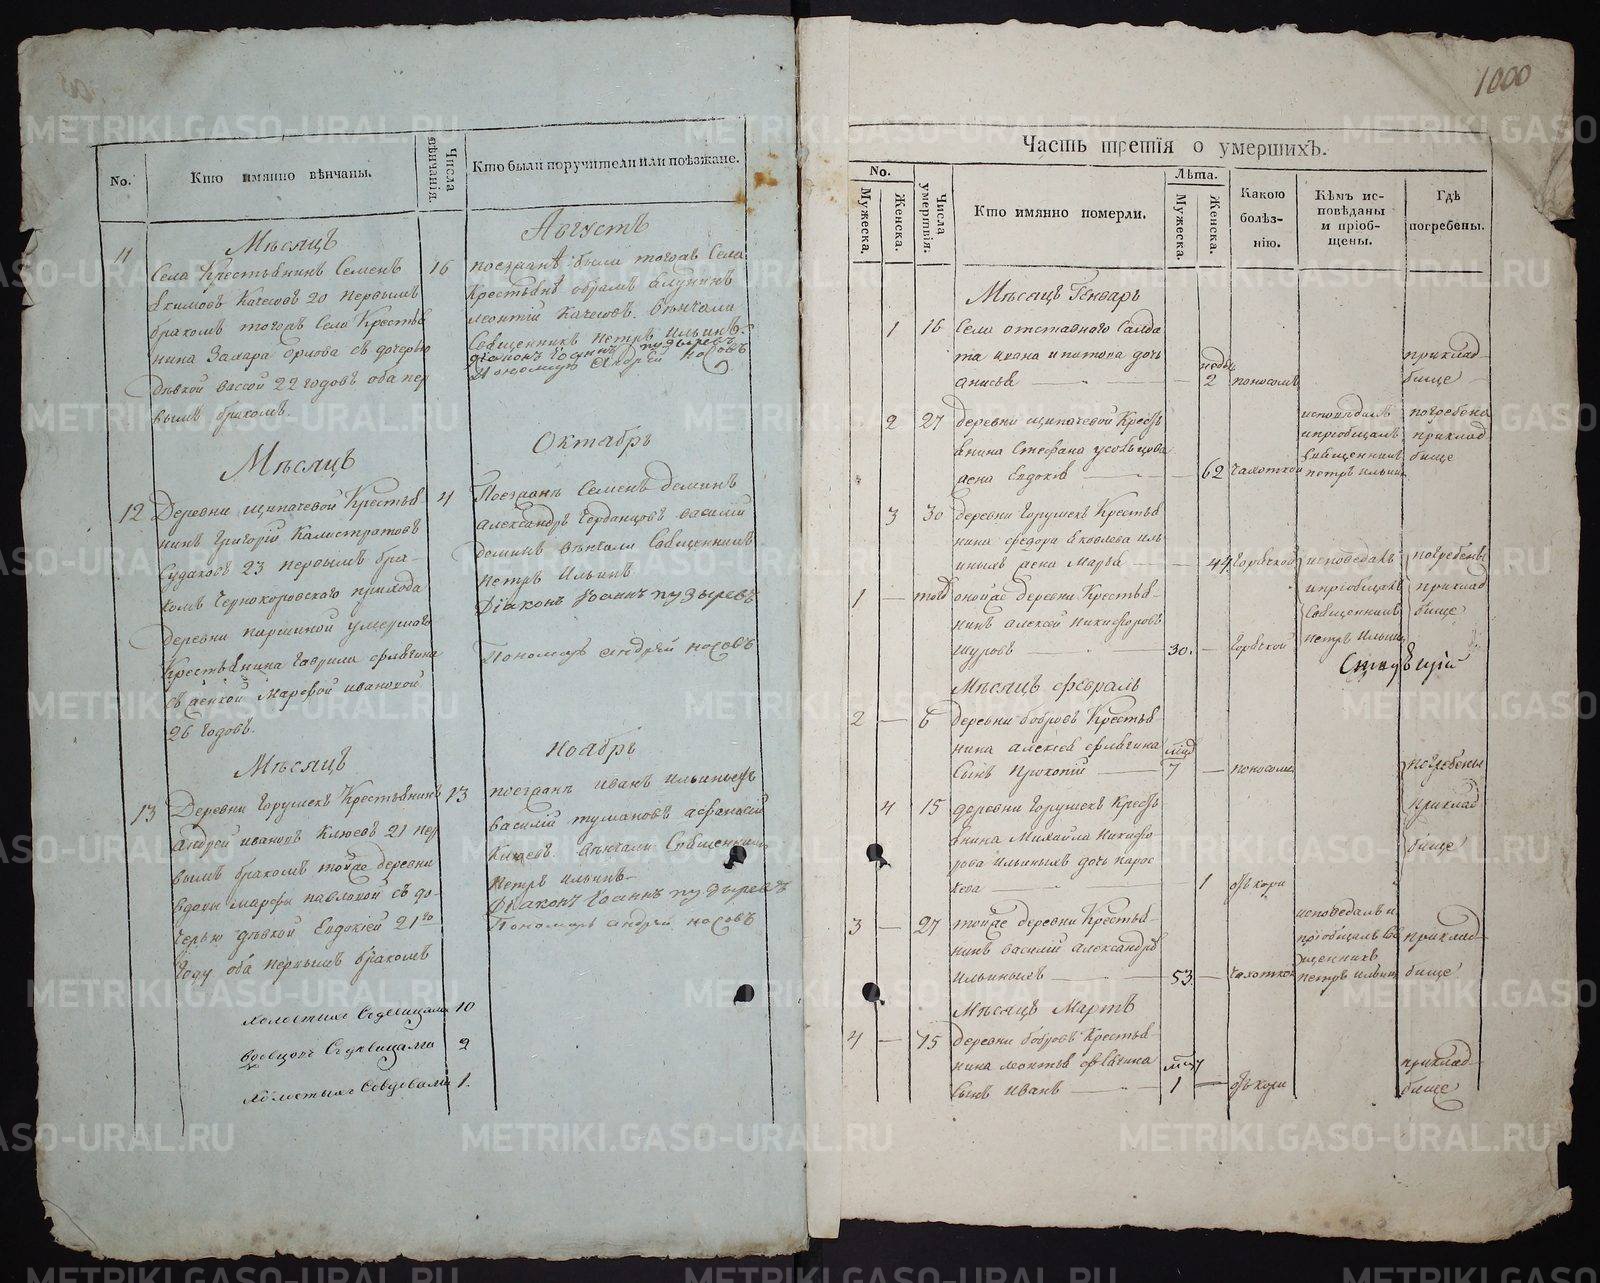 1000
No.
Кто имянно вѣнчаны.
Числа вѣнчанія.
Кто были поручители или поѣзжане.
Мѣсяцъ
Августъ
11
Села Крестьянинъ Семенъ
16
Екимовъ Качесовъ 20 первымъ
бракомъ тогожъ Села Крестья
нина Захара Орлова съ дочерью
Дѣвкой Вассой 22 годовъ оба пер
вымъ бракомъ.
поезжанѣ были тогожъ Села
Крестьянѣ
Леонтій Качесовъ. Вѣнчали
Священникъ Петръ Ильинъ.
Діаконъ Іоаннъ Пузыревъ
Пономарь Андрей Носовъ
Мѣсяцъ
Октябрь
12
Деревни Щипачевой Крестья
4
нинъ Григорій Калистратовъ
Судаковъ 23 первымъ бра-
комъ Чернокоровскаго прихода
деревни Паршиной умершаго
Крестьянина Гаврила
съ женкой Марфой Ивановой
26 годовъ.
Поезжанъ Семенъ Деминъ
Александръ Василій
Деминъ Вѣнчали Священникъ
Петръ Ильинъ
Діаконъ Іоаннъ Пузыревъ
Пономарь Андрей Носовъ
Мѣсяцъ
Ноябрь
13
Деревни Горушекъ Крестьянинъ
13
Андрей Ивановъ Клюевъ 21 пер
вымъ бракомъ тойже деревни
вдовы Марфы Павловой съ до-
черью дѣвкой Евдокіей 21го
году оба первымъ бракомъ
поезжанъ Иванъ Ильиныхъ
Василій Тумановъ Афанасій
Клюевъ. Вѣнчали Священникъ
Петръ Ильинъ
Діаконъ Іоаннъ Пузыревъ
Пономарь Андрей Носовъ
10
2
1.
Часть третія о умершихъ.
No.
Мужеска.
Женска.
Числа умертвія.
Кто имянно померли.
Лѣта.
Мужеска.
Женска.
Какою болѣз-нію.
Кѣмъ ис-повѣданы и пріоб-щены.
Гдѣ погребены.
Мѣсяцъ Генварь
1 16 Села отставного Салда
та Ивана дочь
приклад-
2 поносомъ
бище
2 27 деревни Щипачевой Кресть
янина Стефана
жена Евдокія 62 чахоткой
исповѣдалъ
и пріобщалъ
Священникъ
Петръ Ильинъ
погребена
приклад
бище
3 30 деревни Горушекъ Крестья
нина Федора Яковлева Иль
иныхъ жена Марья 44 горячкой
исповедалъ
и пріобщалъ
Священникъ
Петръ Ильинъ
погребены
приклад
бище
1 — тогожъ деревни Крестья-
нинъ Алексѣй Никифоровъ
30. — горячкой
Мѣсяцъ Февраль
2 — 6 деревни Бобровъ Крестья
нина Алексѣя
Сынъ Прокопій 7 — поносомъ
погребены
приклад
бище
4 15 деревни Горушекъ Кресть
янина Михайла Никифо
рова Ильиныхъ дочь Парас
кева 1 отъ кори
3 — 27 тойже деревни Крестья-
нинъ Василій Александровъ
Ильиныхъ 53 — чахоткой
исповедалъ и
пріобщалъ Св
ященникъ
Петръ Ильинъ
приклад-
бище
Мѣсяцъ Мартъ
4 — 15 деревни Бобровъ Крестья
нина Леонтья
Сынъ Иванъ 1 — отъ кори
приклад-
бище
METRIKI.GASO-URAL.RU